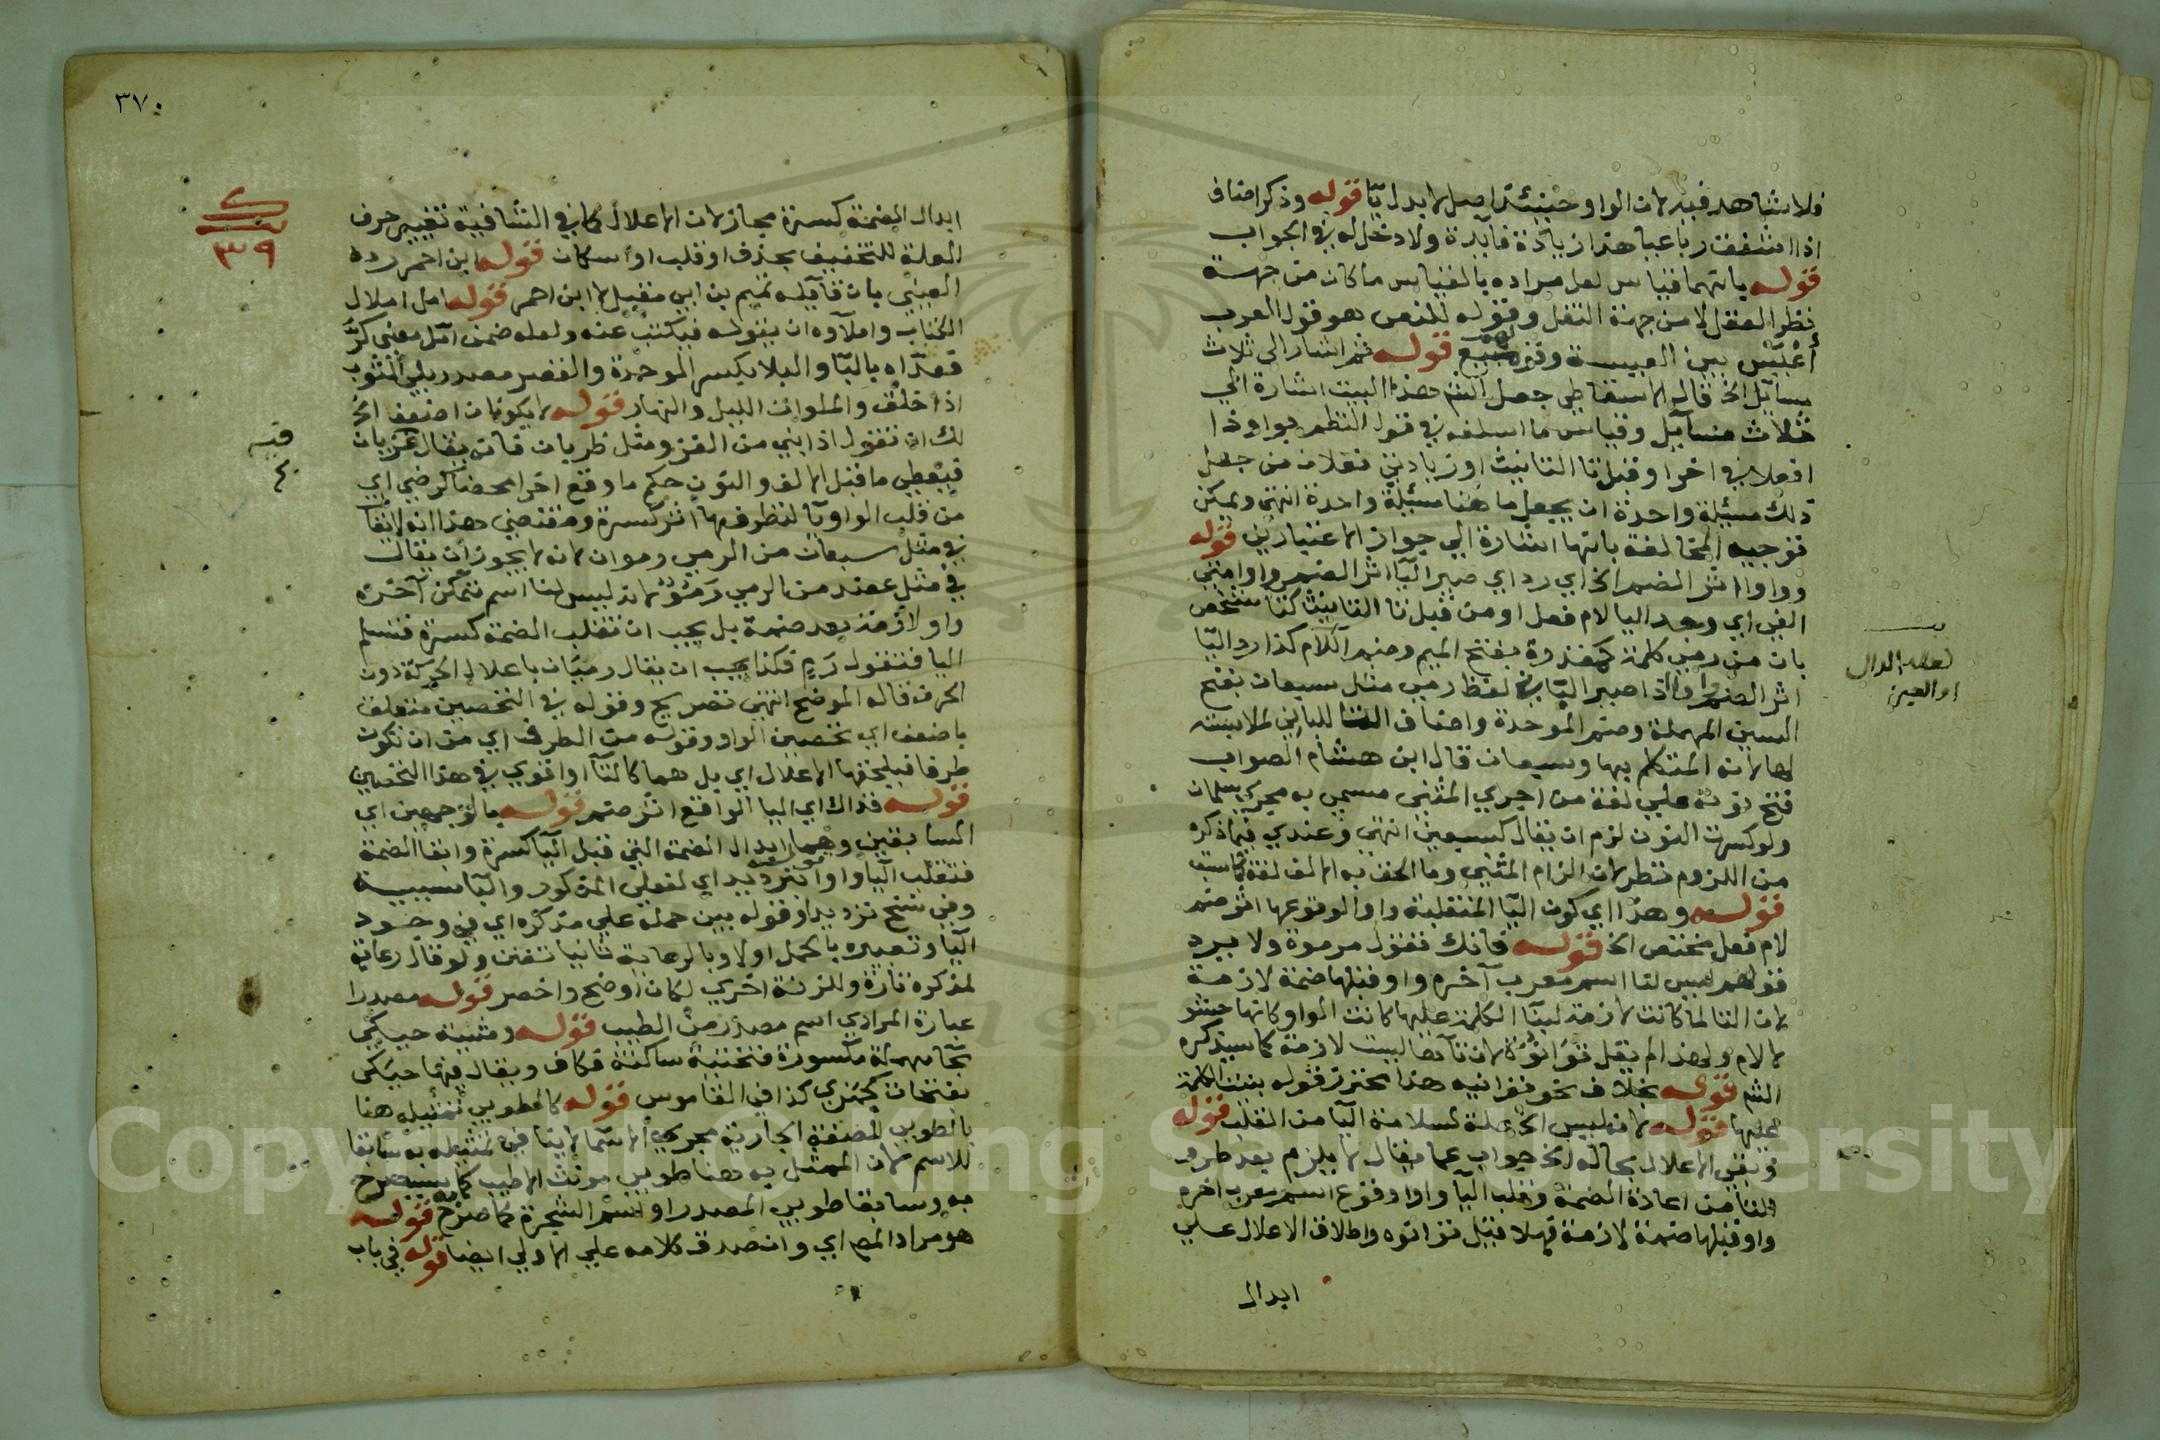 فلا شاهد فيه لان الواو حينئذ اصل لا بدل يا قوله وذكر اضافى
قوله بانهما قياس لعل مراده بالقياس ما كان من جهة
نظر العقل لا من جهة النقل وقوله للنص هو قول العرب
أعْيَسُ بين العيسة قوله ثم اشار الى ثلاث
مسايل الخ قال الاسقاطي جعل الش هذا البيت اشارة الي
ثلاث مسايل وقياس ما اسلفه في قول النظم بواو ذا
افعلا في اخرا وقبل تا التانيث او زيادتي فعلان من جعل
ذلك مسئلة واحدة ان يجعل ما هنا مسئلة واحدة انتهى ويمكن
توجيه المخالفة بانها اشارة الي جواز الاعتبارين قوله
وواوا اثر الضم الخ اي رد اي صير اليا اثر الضم واوا متى
الفي اي وجد اليا لام فعل او من قبل تا التانيث كتا شخص
بان من رمى كلمة كمقدرة بفتح الميم وضم الكلام كذا رد اليا
اثر الضم واوا اذا صير اليا في لفظ رمى مثل سبعان بفتح
السين المهملة وضم الموحدة واضاف التا للباني لملابسته
لها لانه المتكلم بها وسبعان قال ابن هشام الصواب
فتح نونه علي لغة من اجري المثنى مسمي به مجري سلمان
ولو كسرت النون لزم ان يقال كسبعين انتهى وعندي فيما ذكره
من اللزوم نظر لان الزام المثني وما الحق به الالف لغة كما سبق
قوله وهذا اي كون اليا المنقلبة واوا لوقوعها اثر ضم
لام فعل مختص الخ قوله فانك تقول مرموة ولا يرد
قولهم ليس لنا اسم معرب آخره واو قبلها ضمة لازمة
لان التا لما كانت لازمة لبنا الكلمة عليها كانت الواو كانها حشو
لا لام ولهذا لم يقل تَوَانُوُة لان تآها ليست لازمة كما سيذكره
الش قوله بخلاف نحو توانيه هذا محترز قوله بنيت الكلمة
عليها قوله لانه ليس الخ علة لسلامة اليا من القلب قوله
وبقي الاعلال بحاله الخ جواب عما يقال لا يلزم بعد طرو
التا من اعادة الضمة وقلب اليا واوا وقوع اسم معرب اخره
واو قبلها ضمة لازمة فهلا قيل توانوه واطلاق الاعلال علي
ابدال
لعله الدال
او العين
٣٧٠
٣٩
ابدال الضمة كسرة مجاز لان الاعلال كما في الشافية تغيير حرف
العلة للتخفيف بحذف او قلب او اسكان قوله ابن احمر رده
العيني بان قايله تميم بن ابي مقبل لا ابن احمر قوله امل املال
الكتاب واملاوه ان يقوله فيكتب عنه ولعله ضمن امل معنى كرّ
فعداه باليا والبلا بكسر الموحدة والقصر مصدر بلي الثوب
اذا خلق والملوان الليل والنهار قوله لا يكونان اضعف الخ
لك ان تقول اذا بني من الغزو مثل ظربان فانه يقال غزيان
فيعطي ما قبل الالف والنون حكم ما وقع اخرا محضا كرضي اي
من قلب الواو يا لتطرفها اثر كسرة ومقتضي هذا انه لا يقال
في مثل سبعان من الرمي رموان لانه لا يجوز ان يقال
في مثل عضد من الرمي رَمُوٌ لانه ليس لنا اسم متمكن آخره
واو لازمة بعد ضمة بل يجب ان تقلب الضمة كسرة فتسلم
اليا فتقول رَمٍ فكذا يجب ان يقال رميان باعلال الحركة دون
الحرف قاله الموضح انتهى تصريح وقوله في التحصين متعلق
باضعف اي تحصين الواو وقوله من الطرف اي من ان تكون
طرفا فيلحقها الاعلال اي بل هما كالتآ او اقوي في هذا التحصين
قوله فذاك اي اليا الواقع اثر ضم قوله بالوجهين اي
السابقين وهما ابدال الضمة التي قبل اليا كسرة وابقا الضمة
فتقلب اليا واوا
وفي نسخ ترديدا وقوله بين حمله علي مذكره اي في وجود
اليا وتعبيره بالحمل اولا وبالرعاية ثانيا تفنن ولو قال رعاية
لمذكره تارة وللزنة اخري لكان اوضح واخصر قوله مصدرا
عبارة المرادي اسم مصدر من الطيب قوله ومشية حيكي
بحا مهملة مكسورة فتحتية ساكنة فكاف ويقال فيها حيكى
بفتحات كجمزي كذا في القاموس قوله كالطوبي تمثيله هنا
بالطوبي للصفة الجارية مجري الاسما لا ينافي تمثيله به سابقا
للاسم لان الممثل به هنا طوبي مونث الاطيب كما سيصرح
به وسابقا طوبي المصدر او اسم الشجرة كما صرح به قوله
هو مراد المص اي وان صدق كلامه علي الاولي ايضا قوله في باب
Copyright © King Saud University